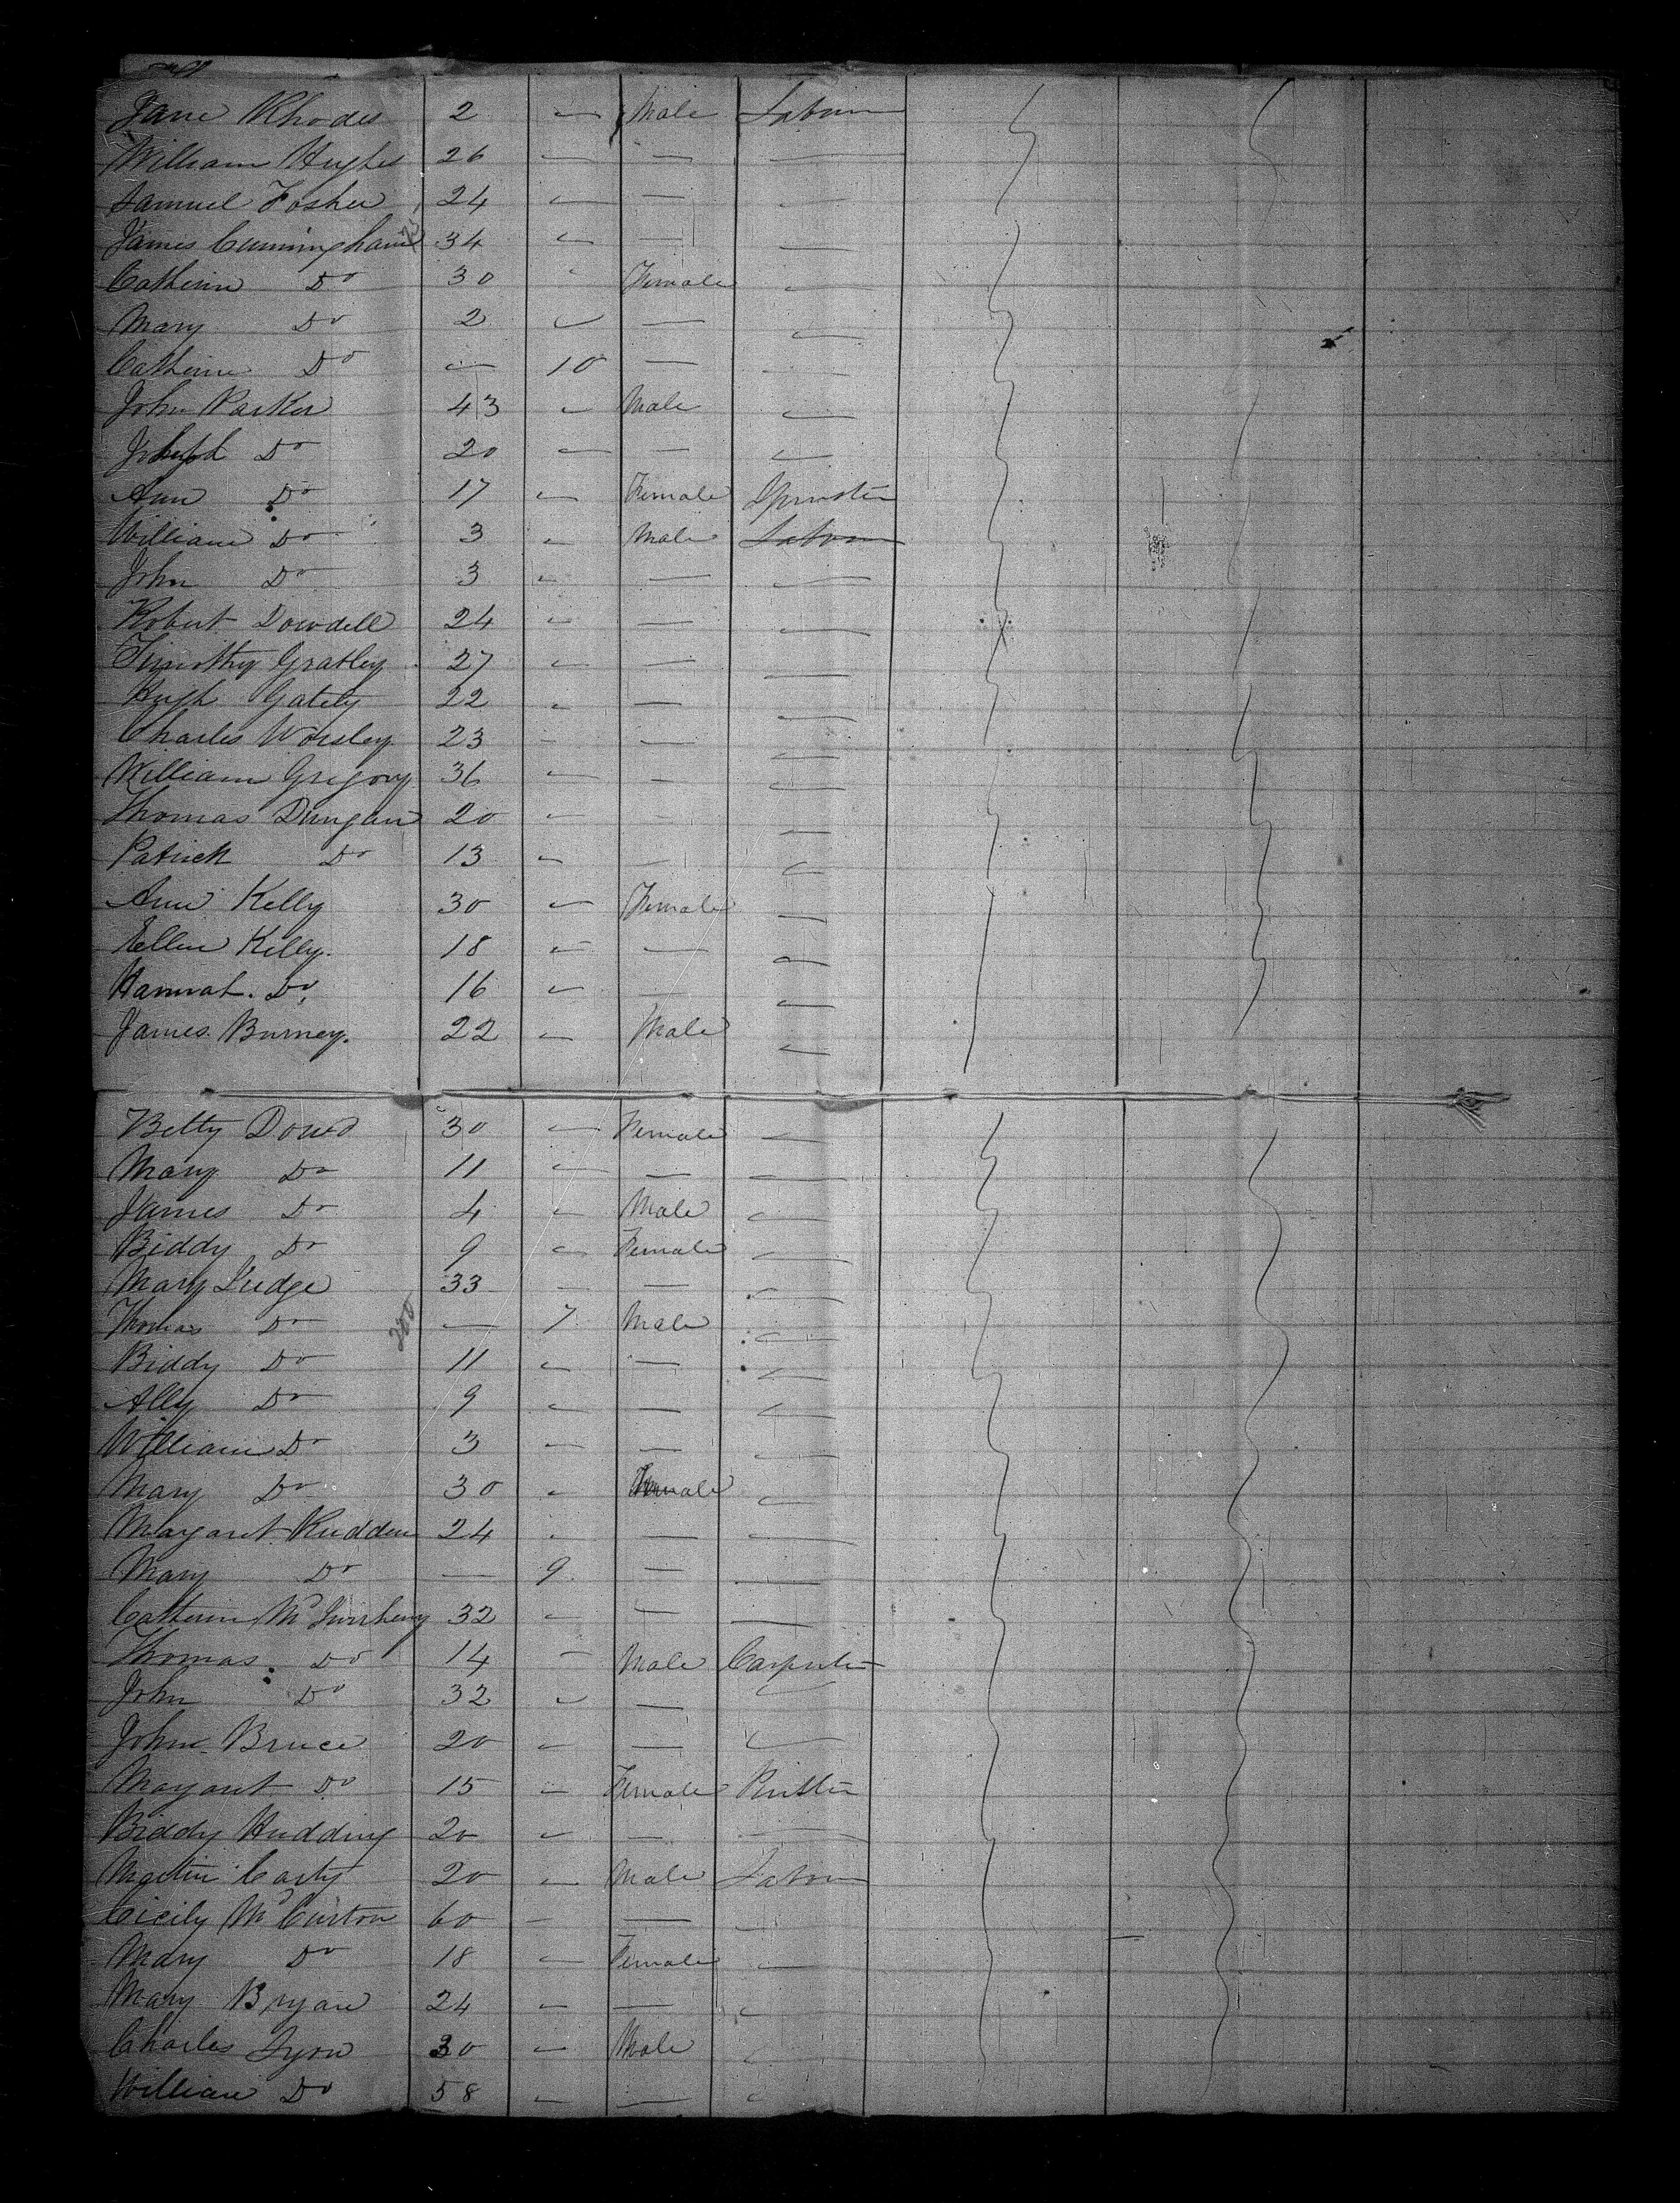 Jane Rhodes 2 — Male Labour
William Hughes 26 — — —
Samuel Fosher 24 — — —
James Cunningham 34 — — —
Catherin Do 30 — Female —
Mary Do 2 — — —
Catherine Do — 10 — —
John Parker 43 — Male —
Joseph Do 20 — — —
Ann Do 17 — Female Spinster
William Do 3 — Male Labour
John Do 3 — — —
Robert Dowdell 24 — — —
Timothy Gratley 27 — — —
Hugh Gately 22 — — —
Charles Worsley 23 — — —
William Gregory 36 — — —
Thomas Dungan 20 — — —
Patrick Do 13 — — —
Ann Kelly 30 — Female —
Ellen Kelly. 18 — — —
Hannah. Do 16 — — —
James Burney. 22 — Male —
Betty Dowd 30 — Female —
Mary Do 11 — — —
James Do 4 — Male —
Biddy Do 9 — Female —
Mary Judge 33 — — —
Thomas Do — 7 Male —
200
Biddy Do 11 — — —
Ally Do 9 — — —
William Do 3 — — —
Mary Do 30 — Female —
Margaret Rudden 24 — — —
Mary Do — 9 — —
Catherin Mc 32 — — —
Thomas Do 14 — Male Carpenter
John Do 32 — — —
John Bruce 20 — — —
Margaret Do 15 — Female
Biddy Hudding 20 — — —
Martin Carty 20 — Male Labour
Cicily Mc Curston 60 — — —
Mary Do 18 — Female —
Mary Bryan 24 — — —
Charles Lyon 30 — Male —
William Do 58 — — —